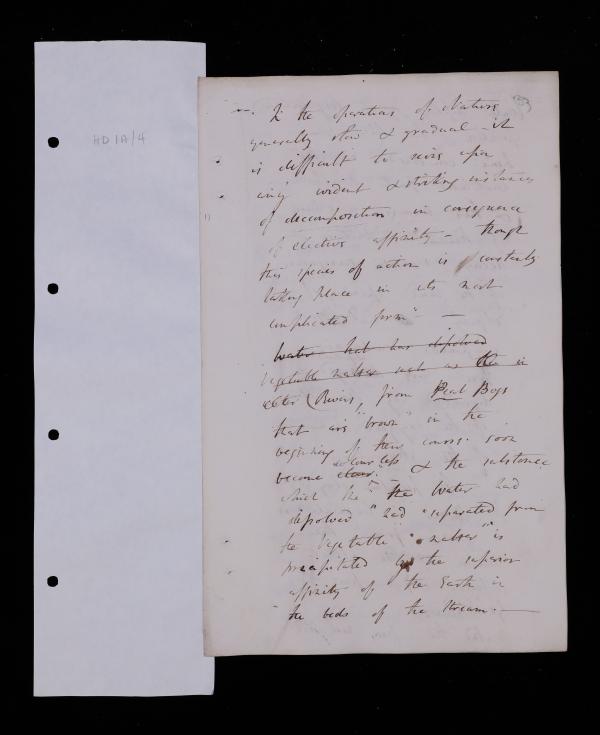 HD 1A/4
53
In the operations of Nature
generally slow & gradual it
is difficult to seize upon
very evident & striking instances
of decomposition in consequence
of elective affinity - though
this species of action is constantly
taking place in its most
complicated form" -
Water that has dissolved
Vegetable matter such as the in
Rivers, from Peat Bogs
that are "brown" in the
beginning of their course soon
become clear colourless & the substance
which the "the Water had
dissolved "had "separated from
the Vegetable "matter" is
precipitated by the superior
affinity of the Earth in
the beds of the Stream. -